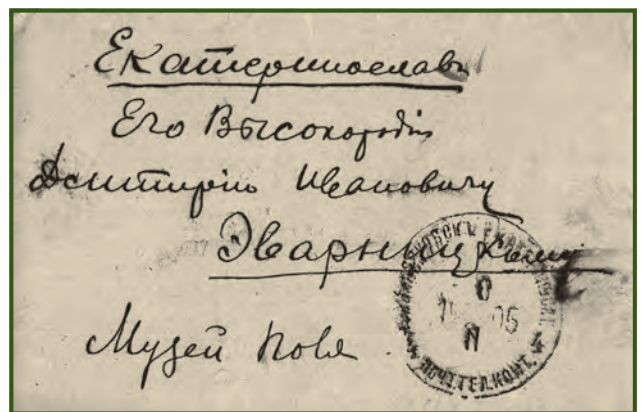 Екатеринославъ
Его Высокородію
Дмитрію Ивановичу
Эварницкому
Музей Поля
ПОЧТ.ТЕЛ.КОНТ. 4